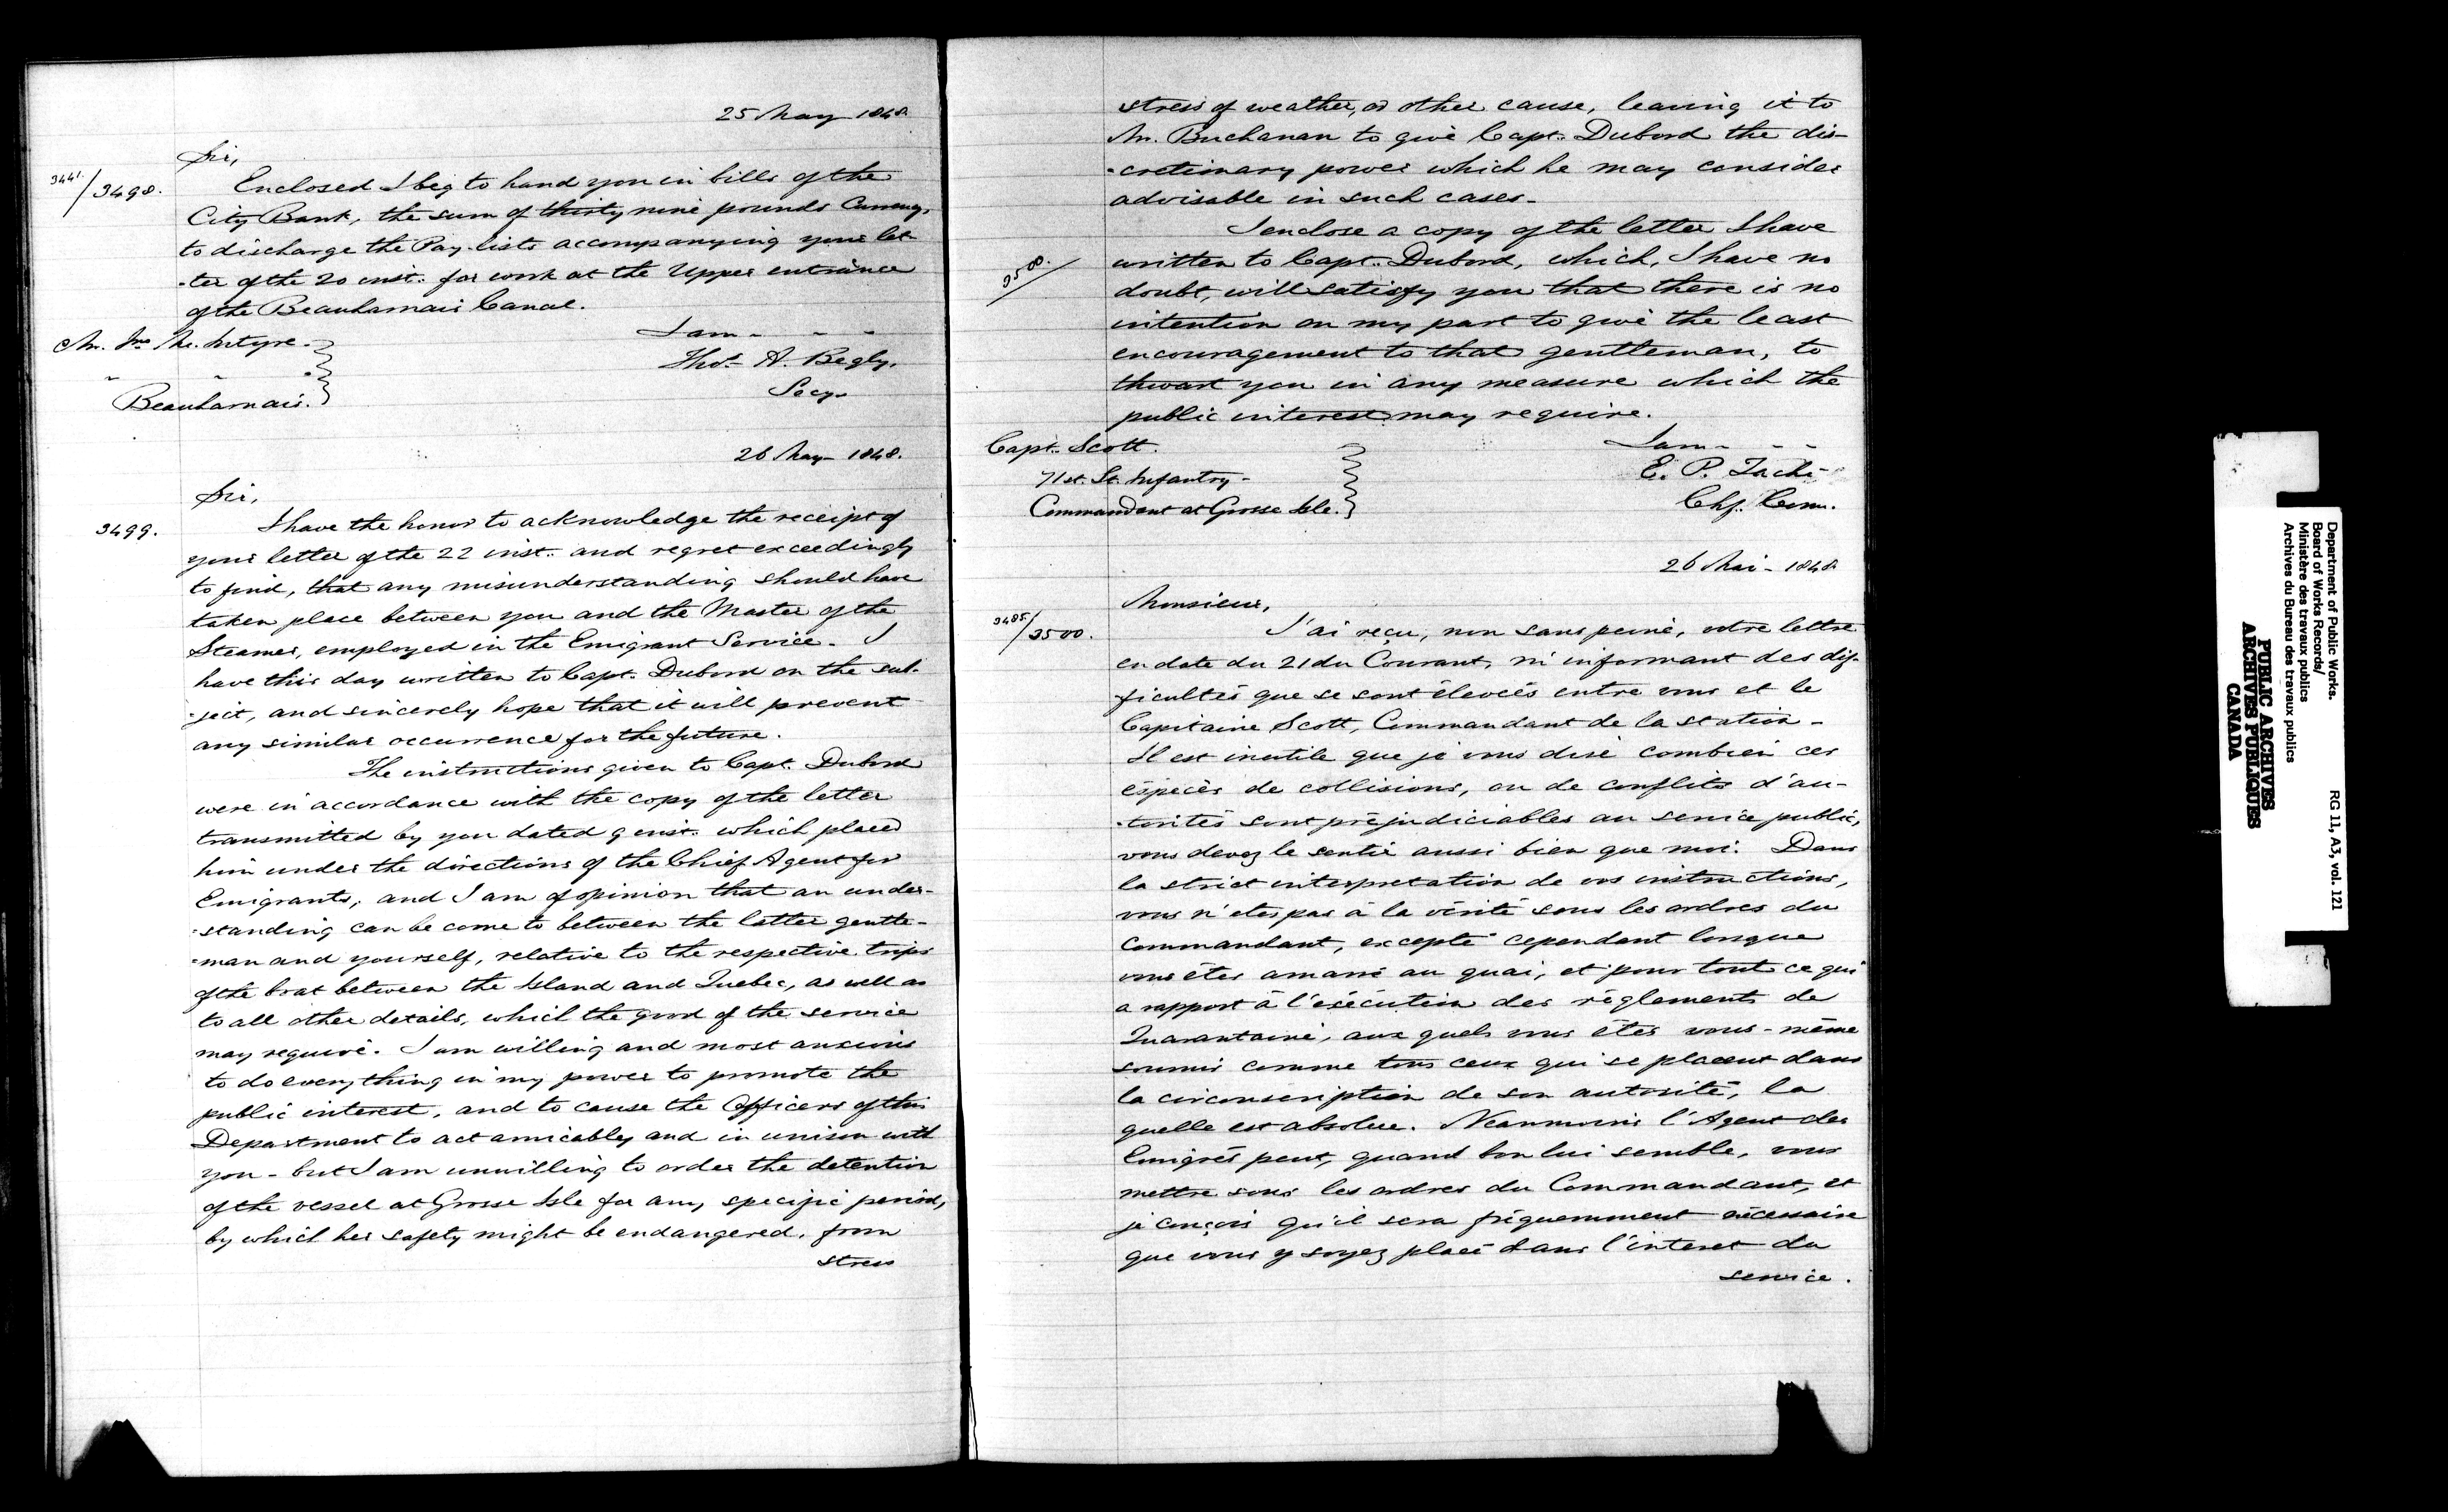 25 May 1848.
Sir,
3441./3498.
Enclosed I beg to hand you in bills of the
City Bank, the sum of thirty nine pounds Currency,
to discharge the Pay-lists accompanying your let-
-ter of the 20 inst. for work at the Upper entrance
of the Beauharnais Canal.
I am - - -
Mr. Jno. Mc.Intyre.
Thos. A. Begly.
" " "
Secy.
Beauharnais.
26 May - 1848.
Sir,
3499.
I have the honor to acknowledge the receipt of
your letter of the 22 inst. and regret exceedingly
to find, that any misunderstanding should have
taken place between you and the Master of the
Steamer, employed in the Emigrant Service. I
have this day written to Capt. Dubord on the sub-
-ject, and sincerely hope that it will prevent
any similar occurrence for the future.
The instructions given to Capt. Dubord
were in accordance with the copy of the letter
transmitted by you dated 9 inst. which placed
him under the directions of the Chief Agent for
Emigrants, and I am of opinion that an under-
-standing can be come to between the latter gentle-
-man and yourself, relative to the respective trips
of the boat between the Island and Quebec, as well as
to all other details, which the good of the service
may require. I am willing and most anxious
to do everything in my power to promote the
public interest, and to cause the Officers of this
Department to act amicably and in unison with
you - but I am unwilling to order the detention
of the vessel at Grosse Isle for any specific period,
by which her safety might be endangered, from
stress
stress of weather, or other cause, leaving it to
Mr. Buchanan to give Capt. Dubord the dis-
-cretionary power which he may consider
advisable in such cases.
I enclose a copy of the letter I have
3500.
written to Capt. Dubord, which, I have no
doubt, will satisfy you that there is no
intention on my part to give the least
encouragement to that gentleman, to
thwart you in any measure which the
public interest may require.
Capt. Scott.
I am - - -
71st. Lt. Infantry -
E. P. Taché
Commandant at Grosse Isle.
Chf. Com.
26 Mai - 1848.
Monsieur,
3485/3500.
J'ai reçu, non sans peine, votre lettre
en date du 21 du Courant, m'informant des dif-
ficultés que se sont élevées entre vous et le
Capitaine Scott, Commandant de la station -
Il est inutile que je vous dise combien ces
éspèces de collisions, ou de conflits d'au-
-torités sont préjudiciables au service public,
vous devez le sentir aussi bien que moi. Dans
la strict interpretation de vos instructions,
vous n'etes pas à la vérité sous les ordres du
Commandant, excepté cependant lorsque
vous êtes amarré au quai, et pour tout ce qui
a rapport à l'exécution des réglements de
Quarantaine, aux quels vous êtes vous-même
soumis comme tous ceux qui se placent dans
la circonscription de son autorité, la
quelle est absolue. Neanmoins l'Agent des
Emigrés peut, quand bon lui semble, vous
mettre sous les ordres du Commandant, et
je conçois qu'il sera fréquemment nécessaire
que vous y soyez placé dans l'interet du
service.
Department of Public Works.
Board of Works Records/
Ministère des travaux publics
Archives du Bureau des travaux publics
RG 11, A3, vol. 121
PUBLIC ARCHIVES
ARCHIVES PUBLIQUES
CANADA